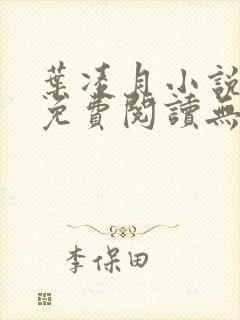 葉凌月小說
免費閱讀無
李保田